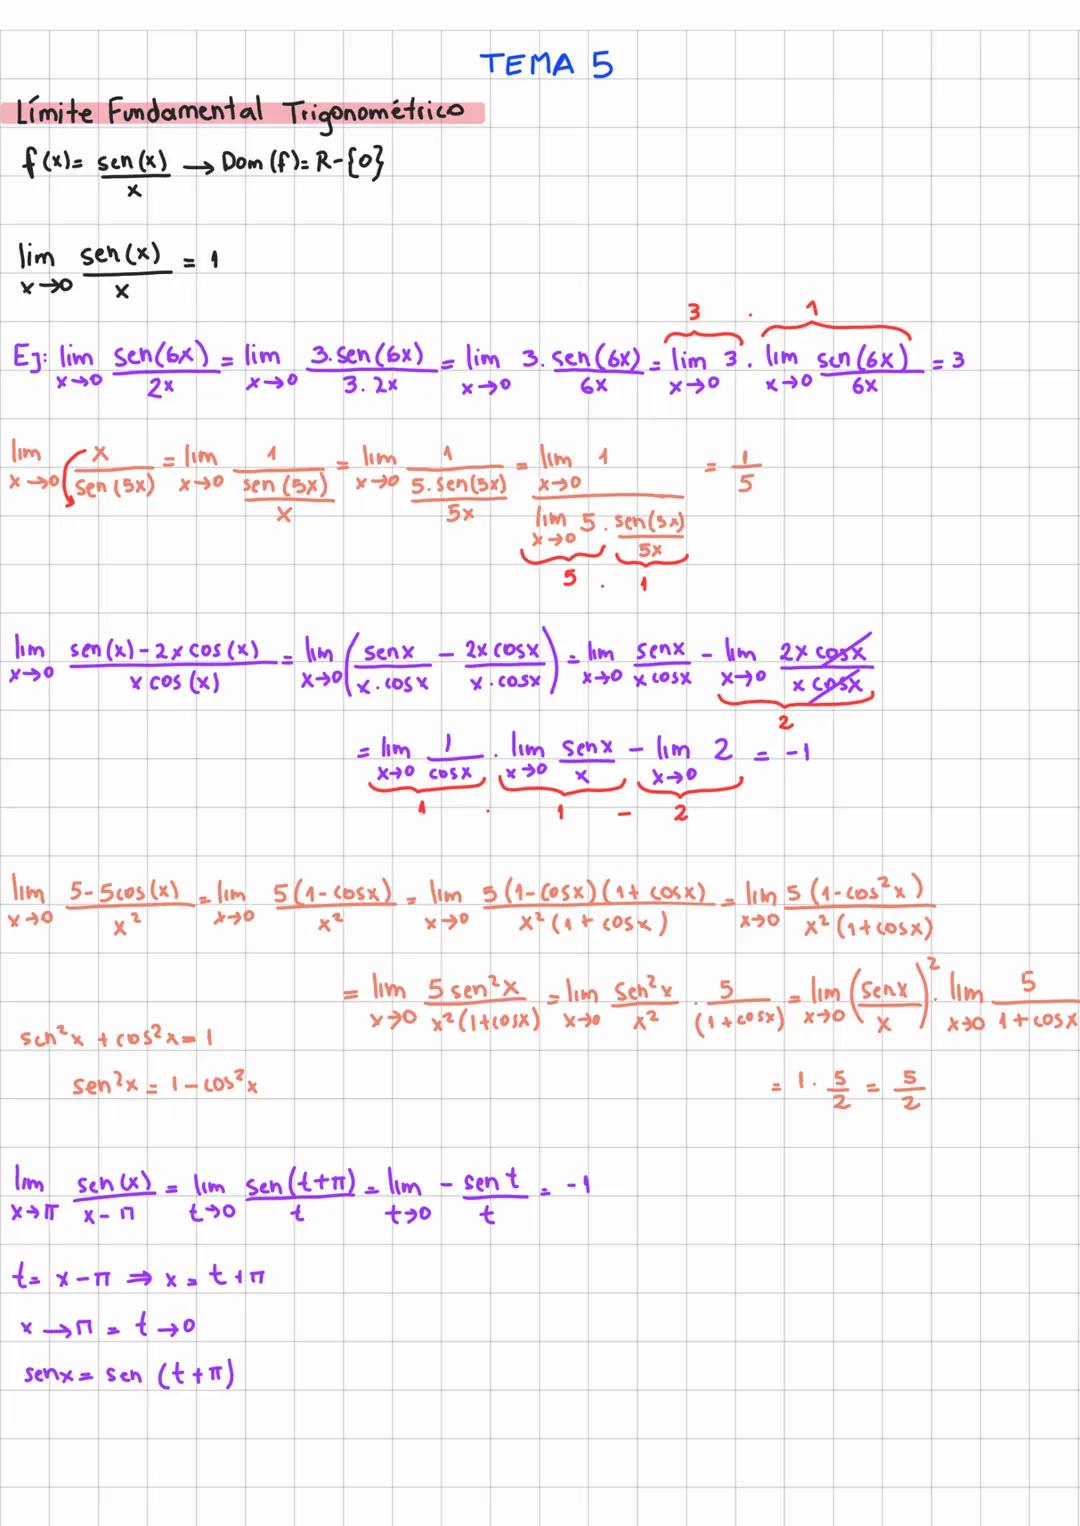 TEMA 5
Límite Fundamental Trigonométrico
f(x)= sen(x)/x → Dom(f)= R-{0}
lim x→0 sen(x)/x = 1
3 . 1
Ej: lim x→0 sen(6x)/2x = lim x→0 3.sen(6x)/3.2x = lim x→0 3. sen(6x)/6x = lim x→0 3 . lim x→0 sen(6x)/6x = 3
lim x→0 x/sen(5x) = lim x→0 1/(sen(5x)/x) = lim x→0 1/(5.sen(5x)/5x) = lim x→0 1 / lim x→0 5 . sen(5x)/5x = 1/5
5 . 1
lim x→0 (sen(x)-2x cos(x))/(x cos(x)) = lim x→0 (senx/x.cosx - 2x cosx/x.cosx) = lim x→0 senx/x cosx - lim x→0 2x cosx/x cosx
2
= lim x→0 1/cosx . lim x→0 senx/x - lim x→0 2 = -1
1 . 1 - 2
lim x→0 (5-5cos(x))/x² = lim x→0 5(1-cosx)/x² = lim x→0 5(1-cosx)(1+cosx)/x²(1+cosx) = lim x→0 5(1-cos²x)/x²(1+cosx)
= lim x→0 5 sen²x/x²(1+cosx) = lim x→0 sen²x/x² . 5/(1+cosx) = lim x→0 (senx/x)² . lim x→0 5/1+cosx
sen²x + cos²x = 1
sen²x = 1-cos²x
= 1 . 5/2 = 5/2
lim x→π sen(x)/x-π = lim t→0 sen(t+π)/t = lim t→0 - sen t/t = -1
t= x-π ⇒ x = t+π
x→π = t→0
senx= sen (t+π)